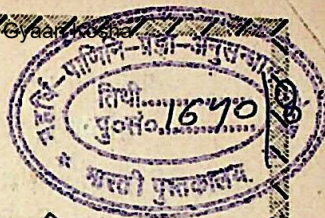 Gyaan Kosha
महर्षि-पाणिनि-प्रज्ञा-अनुसन्धान
तिथी..........
पु०सं० 1670
* भारती पुस्तकालय